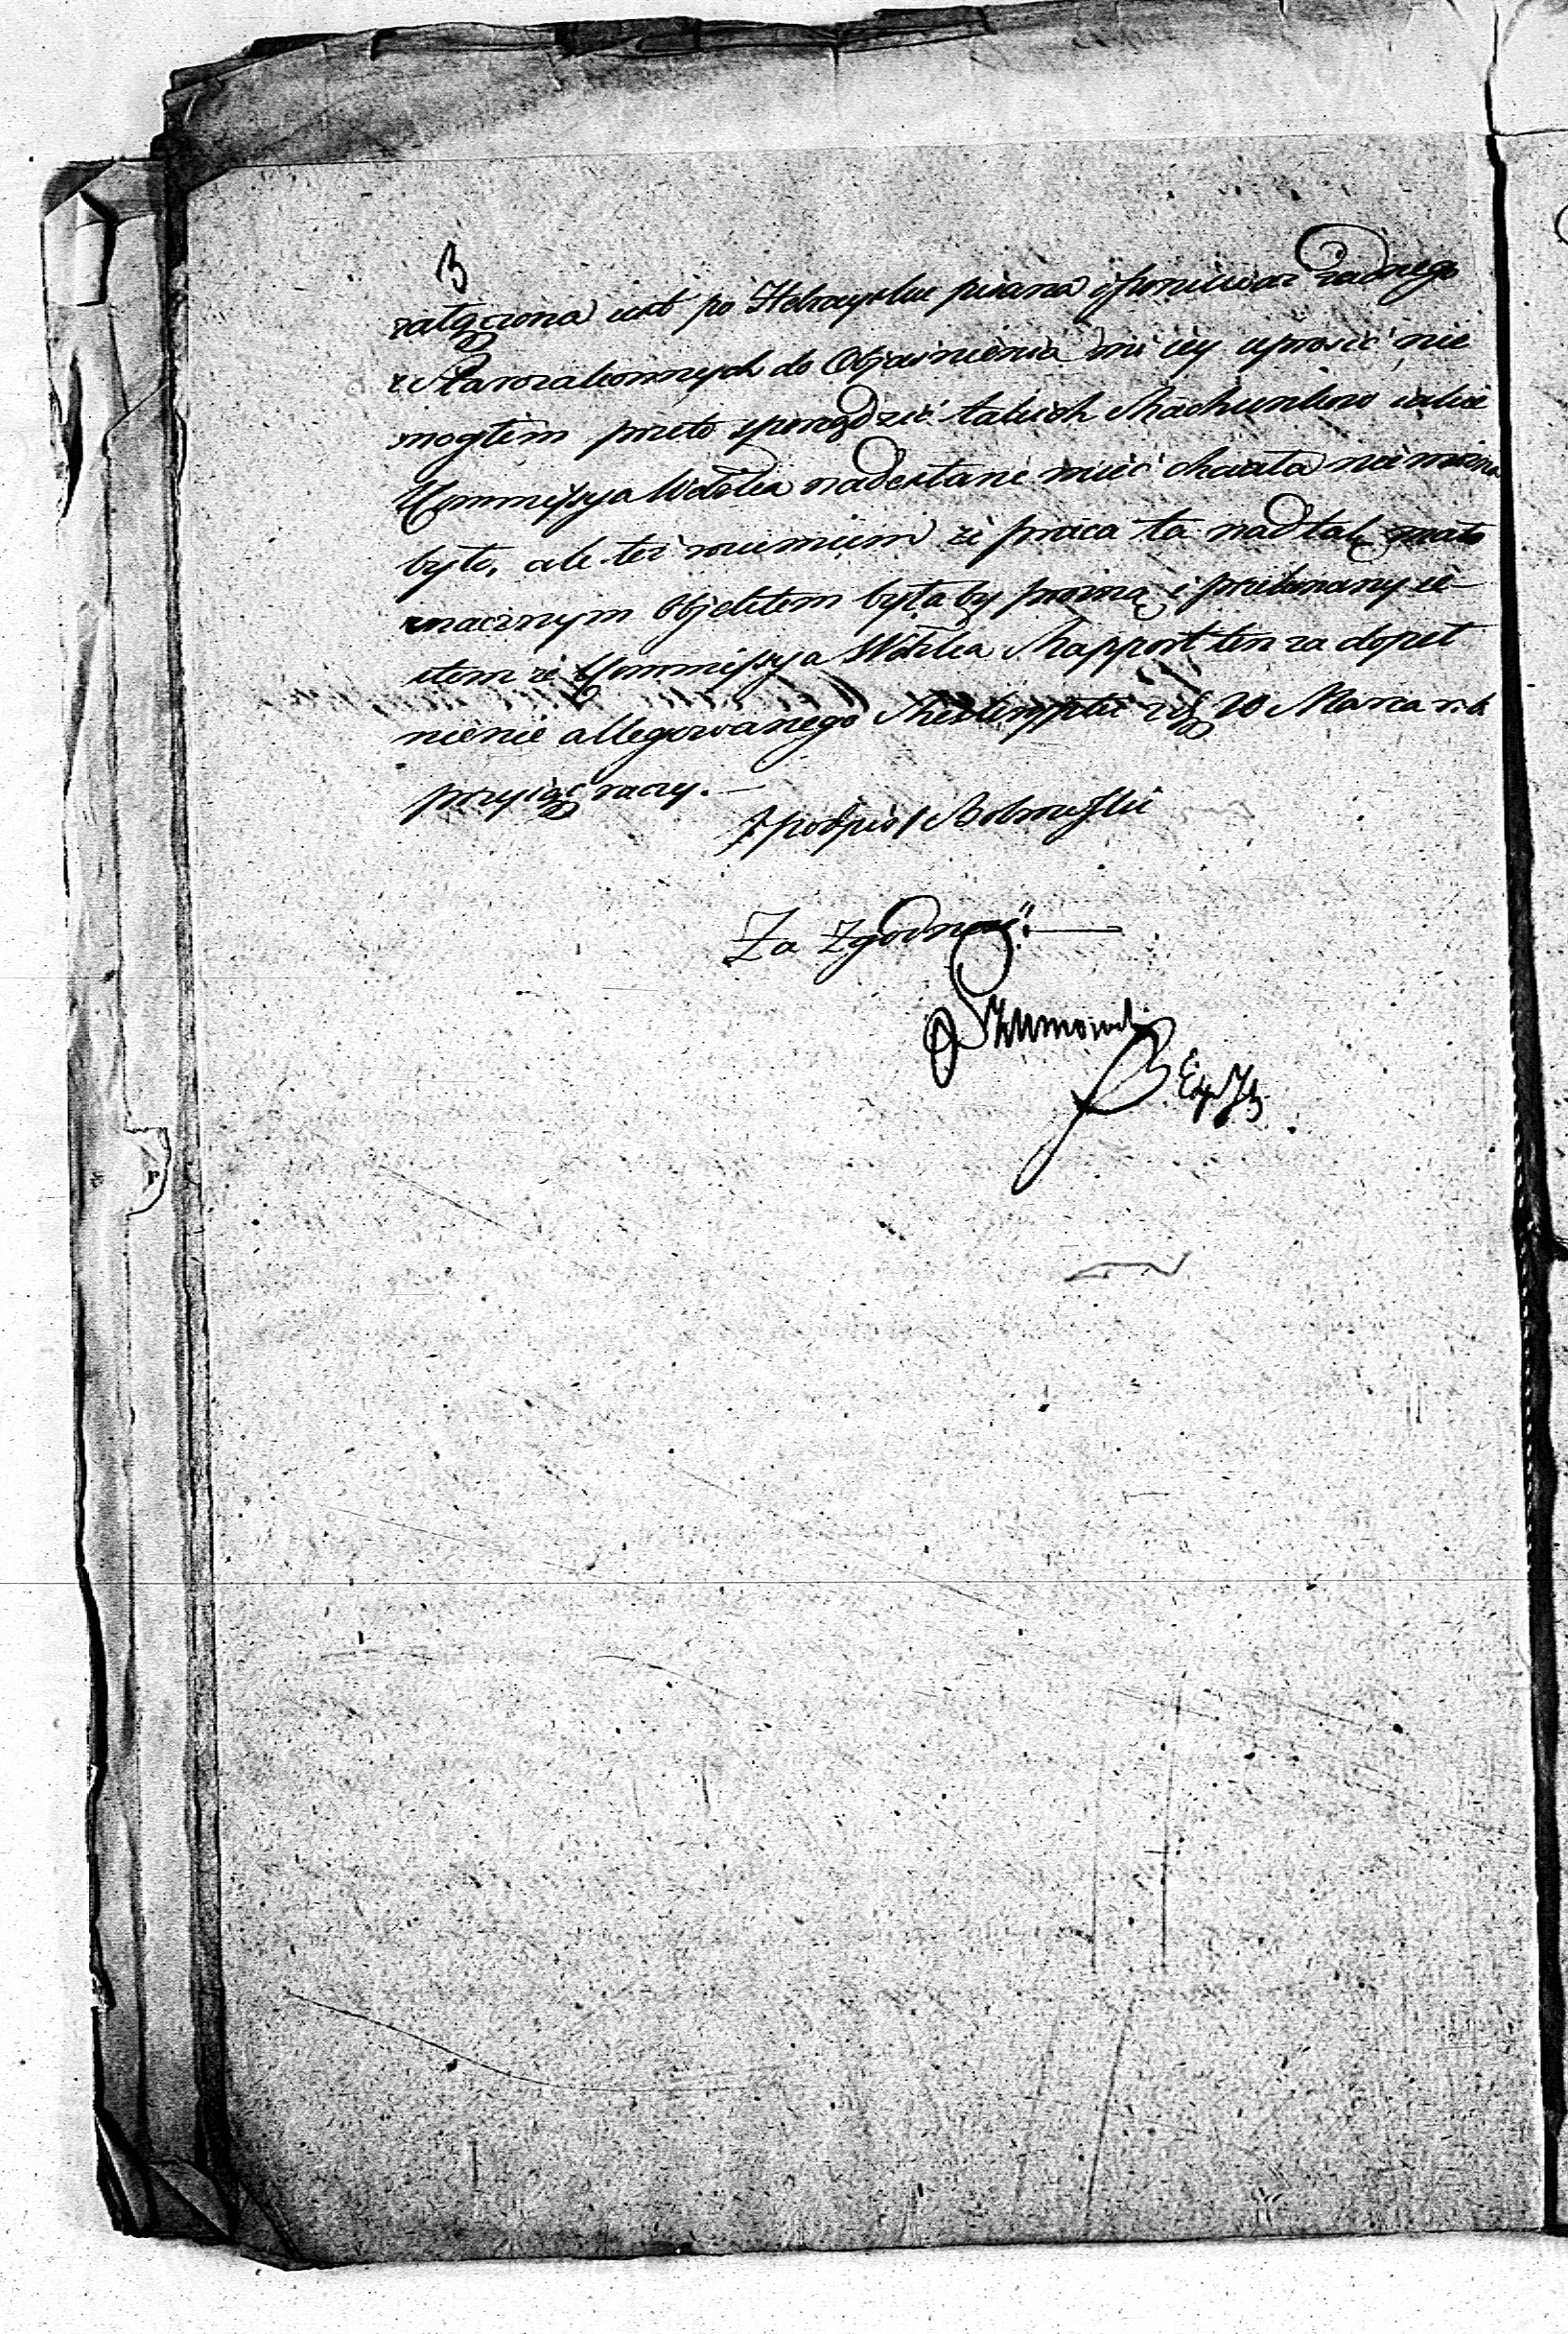 B
załączona iest po Hebraysku pisana i ponieważ żadnego
z Starozakonnych do Objaśnienia mi iey uprosić nie
mogłem przeto sporządzić takich Rachunkow iakie
Kommissya Wdzka nadesłane mieć chciała nie można
było, ale też rozumiem że praca ta nad tak mało
znacznym Objektem byłaby prożną i przekonany ie-
stem że Kommissya Wdzka Rapport ten za dopeł
nienie allegowanego Reskryptu z dnia 20 Marca r. b.
przyiąć raczy.—
/podpis/ Bobrowski
Za Zgodność.—
Szumowski